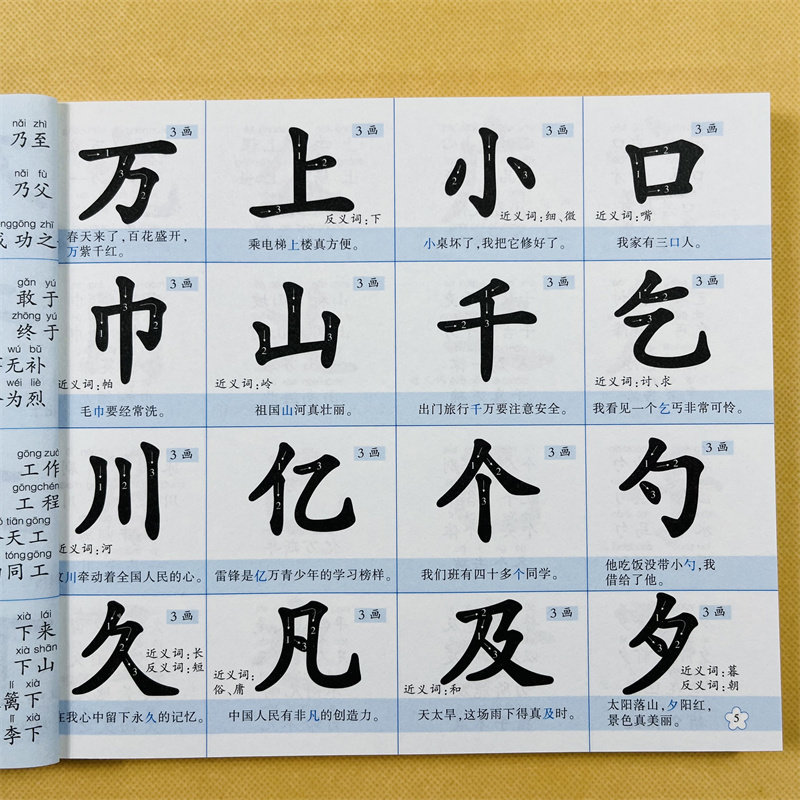 nǎi zhì
乃至
nǎi fù
乃父
gōng zhī
功之
gǎn yú
敢于
zhōng yú
终于
wú bǔ
无补
wéi liè
为烈
gōng zuò
工作
gōngchén
工程
tiān gōng
天工
tóng gōng
同工
xià lái
下来
xià shān
下山
lí xià
篱下
lǐ xià
李下
3画
万
春天来了，百花盛开，
万紫千红。
3画
上
反义词：下
乘电梯上楼真方便。
3画
小
近义词：细、微
小桌坏了，我把它修好了。
3画
口
近义词：嘴
我家有三口人。
3画
巾
近义词：帕
毛巾要经常洗。
3画
山
近义词：岭
祖国山河真壮丽。
3画
千
出门旅行千万要注意安全。
3画
乞
近义词：讨、求
我看见一个乞丐非常可怜。
3画
川
近义词：河
汶川牵动着全国人民的心。
3画
亿
雷锋是亿万青少年的学习榜样。
3画
个
我们班有四十多个同学。
3画
勺
他吃饭没带小勺，我
借给了他。
3画
久
近义词：长
反义词：短
在我心中留下永久的记忆。
3画
凡
近义词：
俗、庸
中国人民有非凡的创造力。
3画
及
近义词：和
天太旱，这场雨下得真及时。
3画
夕
近义词：暮
反义词：朝
太阳落山，夕阳红，
景色真美丽。
5